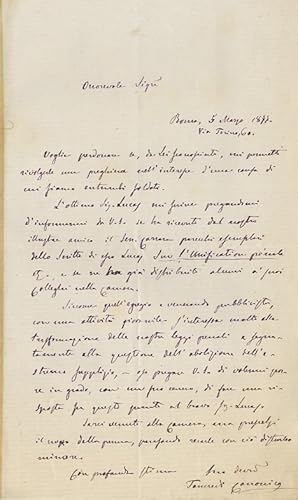 Onorevole Sigre
Roma, 5 Marzo 1877.
Via Torino,
Voglia perdonare se, da Lei
rivolgerle una preghiera nell'interesse d'una causa di
cui siamo entrambi soldati.
L'ottimo Sig. Lucas mi scrive pregandomi
d'informarmi da V.S. se ha ricevuti dal nostro
illustre amico il Sen. Carrara parecchi esemplari
dello scritto di esso Lucas Sur l'Unification pénale
e se ne ha già distribuiti alcuni a' suoi
Colleghi nella Camera.
Siccome quell'egregio e venerando pubblicista,
con una attività giovanile s'interessa molto alla
trasformazione delle nostre leggi penali e segna-
tamente alla quistione dell'abolizione dell'e-
stremo supplizio, oso pregare V.S. di volermi por-
re in grado, con suo cenno, di fare una ri-
sposta su questo punto al bravo Sig. Lucas.
Sarei venuto alla Camera, ma
il mezzo della penna, recarle con ciò disturbo
minore.
Con profonda stima
Suo
Tancredi Canonico